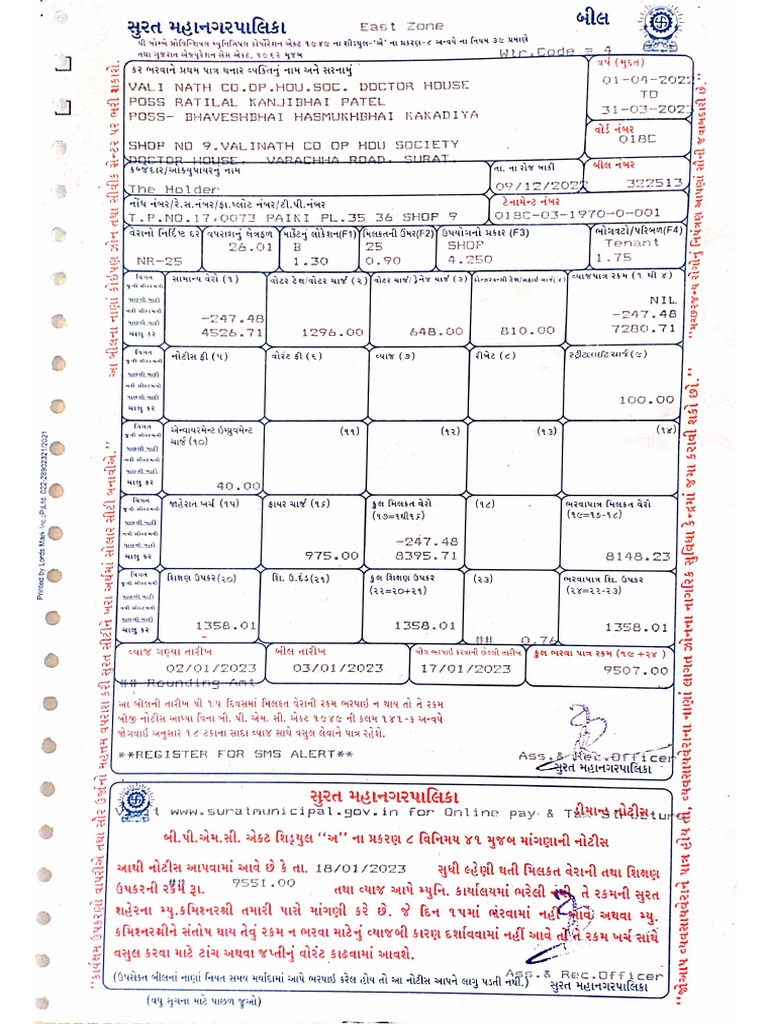 સુરત મહાનગરપાલિકા East Zone બીલ
પી બોમ્બે પ્રોવિન્શિયલ મ્યુનિસિપલ કોર્પોરેશન એક્ટ ૧૯૪૯ ના શીડ્યુલ-'એ' ના પ્રકરણ-૮ અન્વયે ના નિયમ ૩૯ પ્રમાણે
તથા ગુજરાત એજ્યુકેશન સેસ એક્ટ, ૧૯૬૨ મુજબ Wtr.Code = 4
કર ભરવાને પ્રથમ પાત્ર થનાર વ્યક્તિનું નામ અને સરનામું
વર્ષ (મુદત)
VALI NATH CO.OP.HOU.SOC. DOCTOR HOUSE
POSS RATILAL KANJIBHAI PATEL
POSS- BHAVESHBHAI HASMUKHBHAI KAKADIYA
SHOP NO 9.VALINATH CO OP HOU SOCIETY
DOCTOR HOUSE, VARACHHA ROAD, SURAT
01-04-2022
TO
31-03-2023
વોર્ડ નંબર
018C
કબ્જેદાર/ઓક્યુપાયરનું નામ
The Holder
તા. ના રોજ બાકી
09/12/2022
બીલ નંબર
322513
નોંધ નંબર/રે.સ.નંબર/ફા.પ્લોટ નંબર/ટી.પી.નંબર
T.P.NO.17,0073 PAIKI PL.35 36 SHOP 9
ટેનામેન્ટ નંબર
018C-03-1970-0-001
વેરાનો નિર્દિષ્ટ દર વપરાશનું ક્ષેત્રફળ માર્કેટનું લોકેશન(F1) મિલકતની ઉંમર(F2) ઉપયોગનો પ્રકાર (F3) ભોગવટો/પરિબળ(F4)
26.01 B 25 SHOP Tenant
NR-25 1.30 0.90 4.250 1.75
વિગત સામાન્ય વેરો (૧) વોટર ટેક્ષ/વોટર ચાર્જ (૨) વોટર ચાર્જ/ડ્રેનેજ ચાર્જ (૩) વ્યાજપાત્ર રકમ (૧ થી ૪)
NIL
-247.48 -247.48
ચાલુ કર 4526.71 1296.00 648.00 810.00 7280.71
વિગત નોટીસ ફી (૫) વોરંટ ફી (૬) વ્યાજ (૭) રીબેટ (૮) સ્ટ્રીટલાઈટ ચાર્જ(૯)
ચાલુ કર 100.00
વિગત એન્વાયરમેન્ટ ઇમ્પ્રુવમેન્ટ ચાર્જ (૧૦) (૧૧) (૧૨) (૧૩) (૧૪)
ચાલુ કર 40.00
વિગત જાહેરાત ખર્ચ (૧૫) ફાયર ચાર્જ (૧૬) કુલ મિલકત વેરો (૧૭=૧થી૧૬) (૧૮) ભરવાપાત્ર મિલકત વેરો (૧૯=૧૭-૧૮)
-247.48
ચાલુ કર 975.00 8395.71 8148.23
વિગત શિક્ષણ ઉપકર(૨૦) શિ. ઉ.દંડ(૨૧) કુલ શિક્ષણ ઉપકર (૨૨=૨૦+૨૧) (૨૩) ભરવાપાત્ર શિ. ઉપકર (૨૪=૨૨-૨૩)
ચાલુ કર 1358.01 1358.01 1358.01
## 0.76
વ્યાજ ગણ્યા તારીખ બીલ તારીખ બીલ ભરપાઈ કરવાની છેલ્લી તારીખ કુલ ભરવા પાત્ર રકમ (૧૯+૨૪)
02/01/2023 03/01/2023 17/01/2023 9507.00
## Rounding Amt
આ બીલની તારીખ થી ૧૫ દિવસમાં મિલકત વેરાની રકમ ભરપાઈ ન થાય તો તે રકમ
બીજી નોટીસ આપ્યા વિના બી. પી. એમ. સી. એક્ટ ૧૯૪૯ ની કલમ ૧૪૧-ક અન્વયે
જોગવાઈ અનુસાર ૧૮ ટકાના સાદા વ્યાજ સાથે વસુલ લેવાને પાત્ર રહેશે.
**REGISTER FOR SMS ALERT**
Ass.& Rec.Officer
સુરત મહાનગરપાલિકા
સુરત મહાનગરપાલિકા
ડીમાન્ડ નોટીસ
www.suratmunicipal.gov.in for Online pay & Tax Structure
બી.પી.એમ.સી. એક્ટ શિડ્યુલ "અ" ના પ્રકરણ ૮ વિનિમય ૪૧ મુજબ માંગણાની નોટીસ
આથી નોટીસ આપવામાં આવે છે કે તા. 18/01/2023 સુધી લ્હેણી થતી મિલકત વેરાની તથા શિક્ષણ
ઉપકરની રકમ રૂા. ## 9551.00 તથા વ્યાજ આપે મ્યુનિ. કાર્યાલયમાં ભરેલી નથી તે રકમની સુરત
શહેરના મ્યુ.કમિશ્નરશ્રી તમારી પાસે માંગણી કરે છે. જે દિન ૧૫માં ભરવામાં નહીં આવે અથવા મ્યુ.
કમિશ્નરશ્રીને સંતોષ થાય તેવું રકમ ન ભરવા માટેનું વ્યાજબી કારણ દર્શાવવામાં નહીં આવે તો તે રકમ ખર્ચ સાથે
વસુલ કરવા માટે ટાંચ અથવા જપ્તીનું વોરંટ કાઢવામાં આવશે.
Ass.& Rec.Officer
(ઉપરોક્ત બીલનાં નાણાં નિયત સમય મર્યાદામાં આપે ભરપાઈ કરેલ હોય તો આ નોટીસ આપને લાગુ પડતી નથી.) સુરત મહાનગરપાલિકા
(વધુ સુચના માટે પાછળ જુઓ)
આ બીલના નાણાં કોઈપણ ઝોન તથા સીવીક સેન્ટર પર ભરી શકાશે.
"કાર્યક્ષમ ઉપકરણો વાપરીએ તથા સૌર ઉર્જાનો મહત્તમ વપરાશ કરી સુરત સીટીને ખરા અર્થમાં સોલાર સીટી બનાવીએ."
"મચ્છરજન્ય રોગોનું નિયંત્રણ આપણાં સૌની જવાબદારી છે."
"જો આપ વ્યવસાયવેરાને પાત્ર હોય તો, વ્યવસાયવેરાના નાણાં લાગત ઝોનના નાગરિક સુવિધા કેન્દ્રમાં જમા કરાવી શકો છો."
Printed by Lords Mark Inc.(P)Ltd. 022-28902321/2021